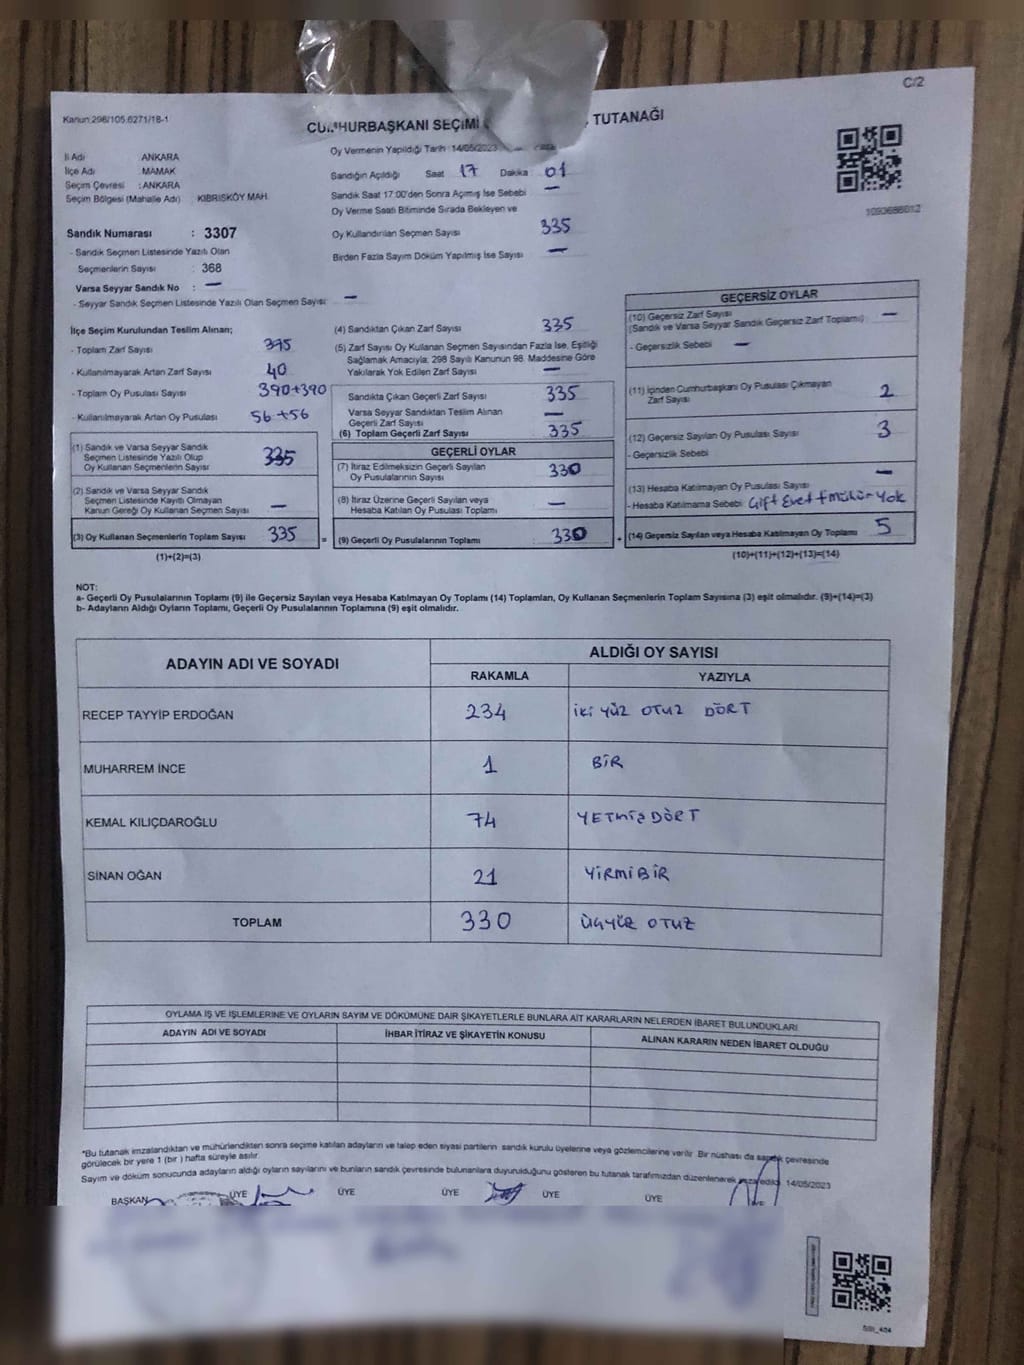 C/2
Kanun:298/105.6271/18-1
CUMHURBAŞKANI SEÇİMİ TUTANAĞI
Oy Vermenin Yapıldığı Tarih 14/05/2023
İl Adı ANKARA
İlçe Adı MAMAK
Seçim Çevresi : ANKARA
Seçim Bölgesi (Mahalle Adı) KIBRISKÖY MAH.
Sandık Numarası : 3307
- Sandık Seçmen Listesinde Yazılı Olan
Seçmenlerin Sayısı : 368
Varsa Seyyar Sandık No : —
- Seyyar Sandık Seçmen Listesinde Yazılı Olan Seçmen Sayısı —
Sandığın Açıldığı Saat 17 Dakika 01
Sandık Saat 17:00'den Sonra Açmış İse Sebebi —
Oy Verme Saati Bitiminde Sırada Bekleyen ve
Oy Kullandırılan Seçmen Sayısı 335
Birden Fazla Sayım Döküm Yapılmış İse Sayısı —
1093686012
İlçe Seçim Kurulundan Teslim Alınan;
- Toplam Zarf Sayısı 395
- Kullanılmayarak Artan Zarf Sayısı 40
- Toplam Oy Pusulası Sayısı 390+390
- Kullanılmayarak Artan Oy Pusulası 56+56
(1) Sandık ve Varsa Seyyar Sandık
Seçmen Listesinde Yazılı Olup
Oy Kullanan Seçmenlerin Sayısı 335
(2) Sandık ve Varsa Seyyar Sandık
Seçmen Listesinde Kayıtlı Olmayan
Kanun Gereği Oy Kullanan Seçmen Sayısı —
(3) Oy Kullanan Seçmenlerin Toplam Sayısı 335 =
(1)+(2)=(3)
(4) Sandıktan Çıkan Zarf Sayısı 335
(5) Zarf Sayısı Oy Kullanan Seçmen Sayısından Fazla İse, Eşitliği
Sağlamak Amacıyla; 298 Sayılı Kanunun 98. Maddesine Göre
Yakılarak Yok Edilen Zarf Sayısı —
Sandıkta Çıkan Geçerli Zarf Sayısı 335
Varsa Seyyar Sandıktan Teslim Alınan
Geçerli Zarf Sayısı —
(6) Toplam Geçerli Zarf Sayısı 335
GEÇERLİ OYLAR
(7) İtiraz Edilmeksizin Geçerli Sayılan
Oy Pusulalarının Sayısı 330
(8) İtiraz Üzerine Geçerli Sayılan veya
Hesaba Katılan Oy Pusulası Toplamı —
(9) Geçerli Oy Pusulalarının Toplamı : 330 +
GEÇERSİZ OYLAR
(10) Geçersiz Zarf Sayısı —
(Sandık ve Varsa Seyyar Sandık Geçersiz Zarf Toplamı)
- Geçersizlik Sebebi —
(11) İçinden Cumhurbaşkanı Oy Pusulası Çıkmayan
Zarf Sayısı 2
(12) Geçersiz Sayılan Oy Pusulası Sayısı 3
- Geçersizlik Sebebi
(13) Hesaba Katılmayan Oy Pusulası Sayısı —
- Hesaba Katılmama Sebebi: Çift Evet + mühür Yok
(14) Geçersiz Sayılan veya Hesaba Katılmayan Oy Toplamı 5
(10)+(11)+(12)+(13)=(14)
NOT:
a- Geçerli Oy Pusulalarının Toplamı (9) ile Geçersiz Sayılan veya Hesaba Katılmayan Oy Toplamı (14) Toplamları, Oy Kullanan Seçmenlerin Toplam Sayısına (3) eşit olmalıdır. (9)+(14)=(3)
b- Adayların Aldığı Oyların Toplamı, Geçerli Oy Pusulalarının Toplamına (9) eşit olmalıdır.
ADAYIN ADI VE SOYADI ALDIĞI OY SAYISI
RAKAMLA YAZIYLA
RECEP TAYYİP ERDOĞAN 234 iki yüz otuz DÖRT
MUHARREM İNCE 1 BİR
KEMAL KILIÇDAROĞLU 74 YETMİŞDÖRT
SİNAN OĞAN 21 YİRMİBİR
TOPLAM 330 üçyüz otuz
OYLAMA İŞ VE İŞLEMLERİNE VE OYLARIN SAYIM VE DÖKÜMÜNE DAİR ŞİKAYETLERLE BUNLARA AİT KARARLARIN NELERDEN İBARET BULUNDUKLARI
ADAYIN ADI VE SOYADI İHBAR İTİRAZ VE ŞİKAYETİN KONUSU ALINAN KARARIN NEDEN İBARET OLDUĞU
*Bu tutanak imzalandıktan ve mühürlendikten sonra seçime katılan adayların ve talep eden siyasi partilerin sandık kurulu üyelerine veya gözlemcilerine verilir. Bir nüshası da sandık çevresinde
görülecek bir yere 1 (bir) hafta süreyle asılır.
Sayım ve döküm sonucunda adayların aldığı oyların sayılarını ve bunların sandık çevresinde bulunanlara duyurulduğunu gösteren bu tutanak tarafımızdan düzenlenerek imza edildi. 14/05/2023
BAŞKAN ÜYE ÜYE ÜYE ÜYE ÜYE ÜYE